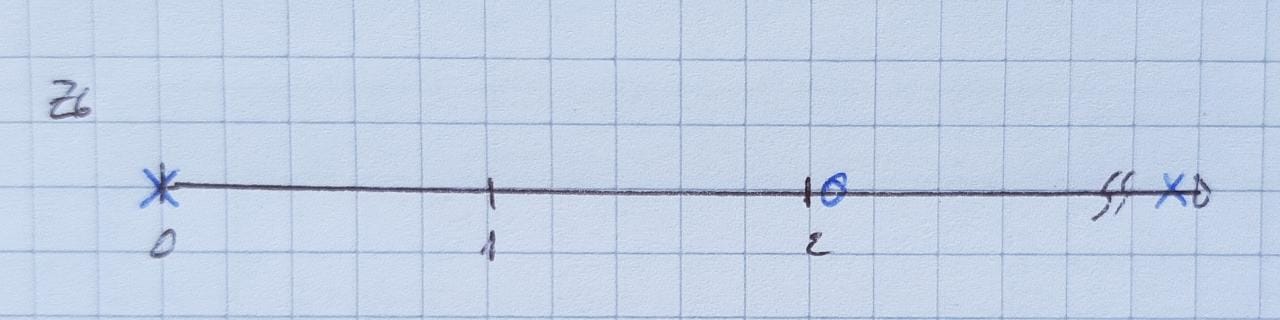 Z6
0 1 2